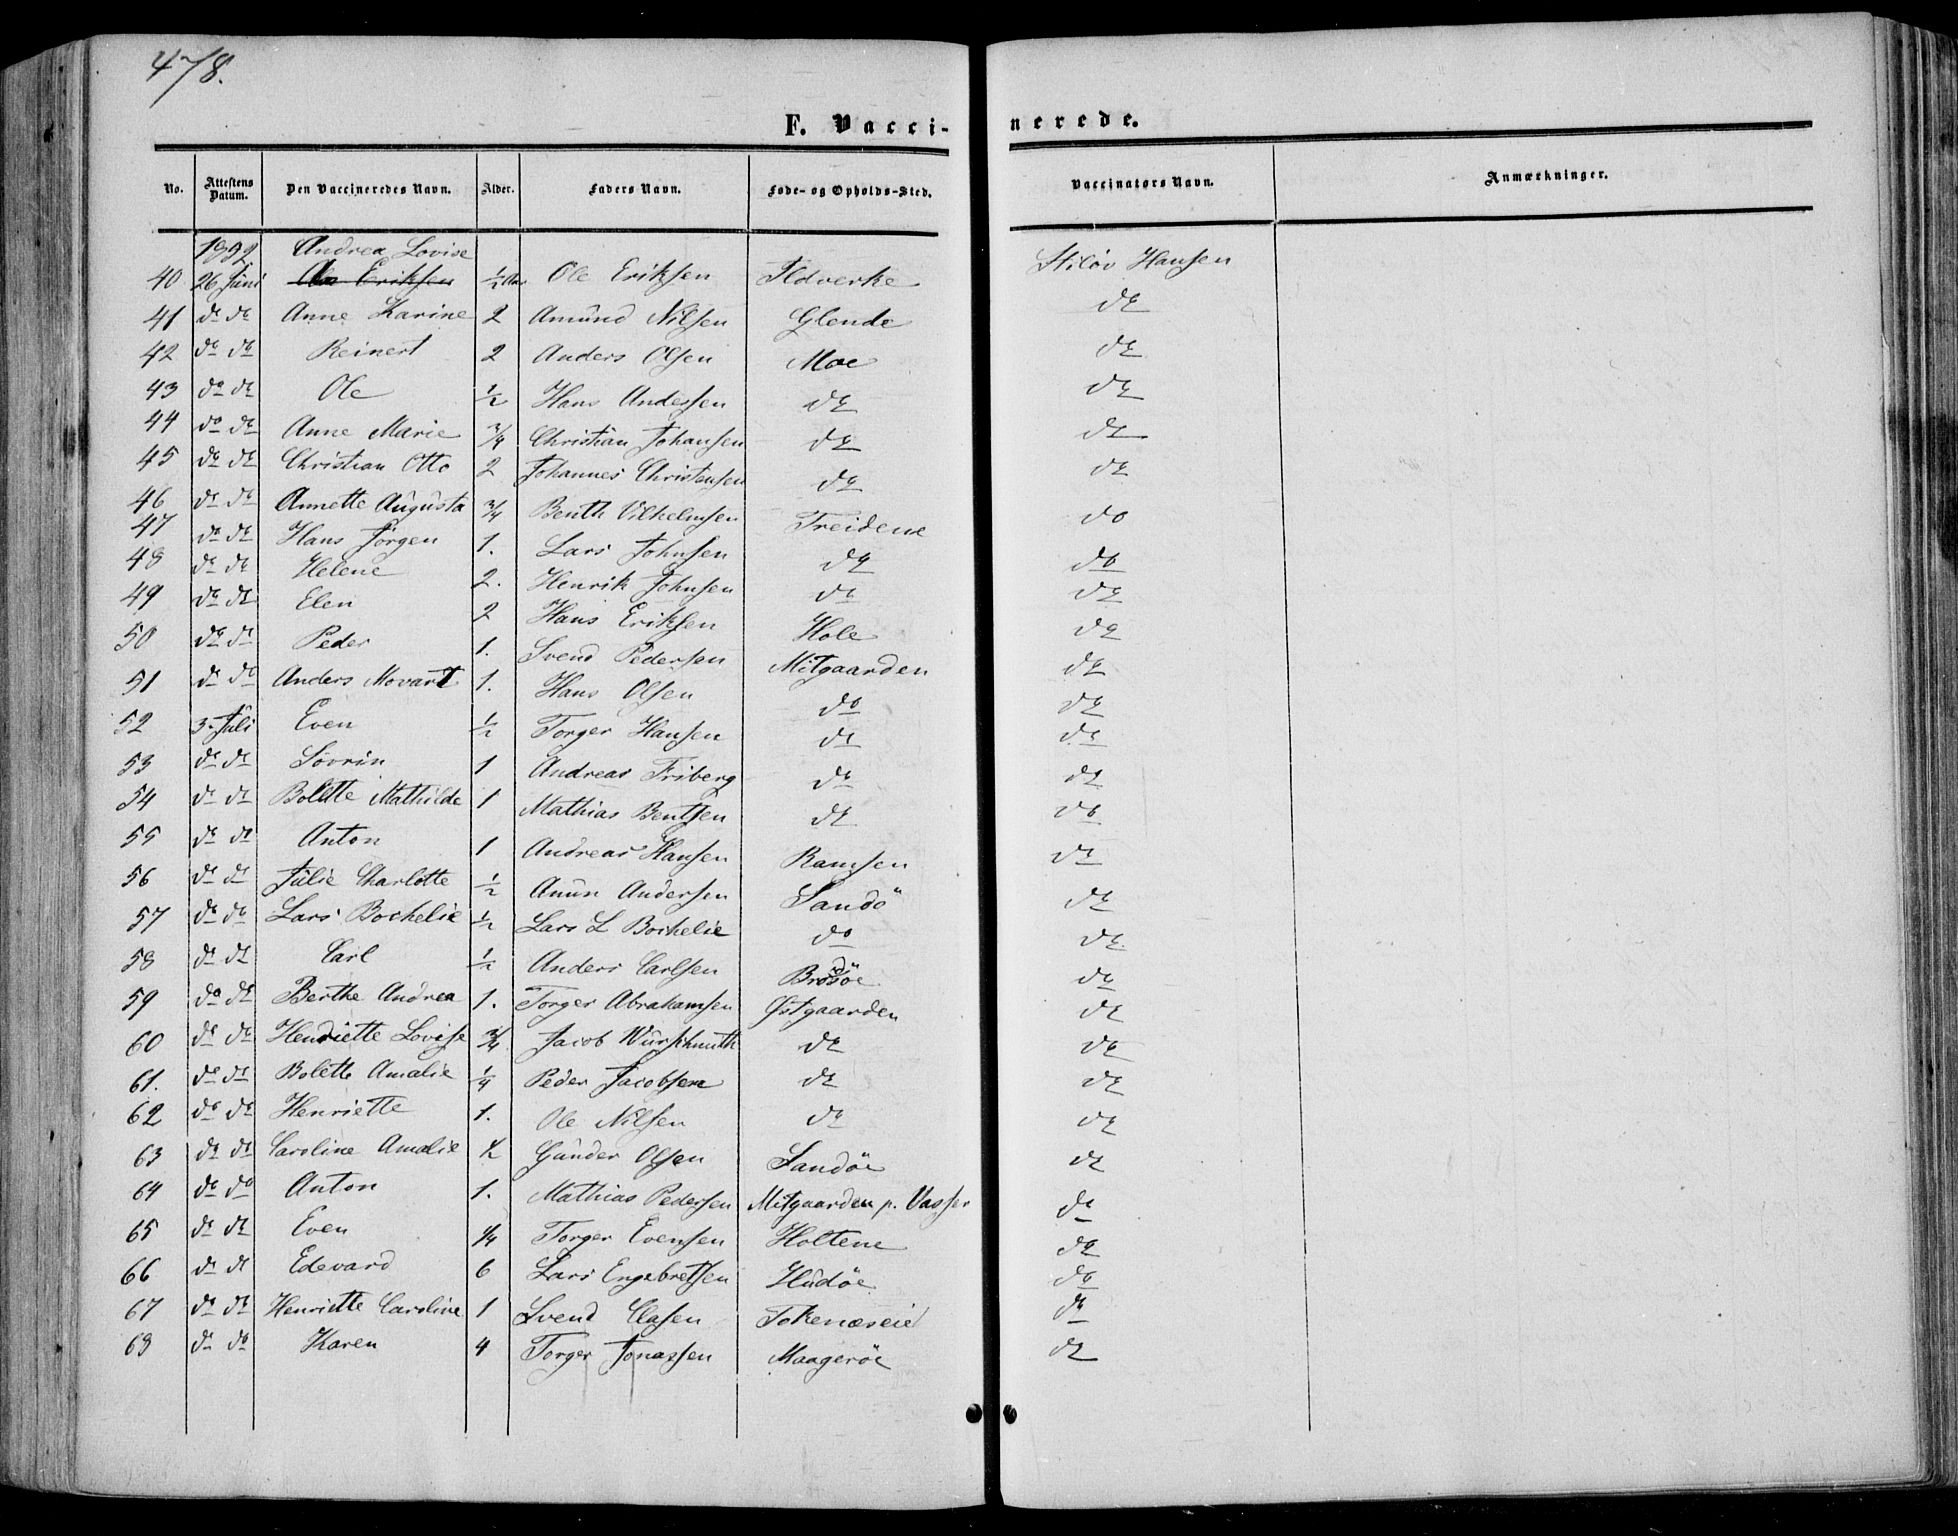 478.
F. Vaccinerede.
No. | Attestens Datum. | Den Vaccineredes Navn. | Alder. | Faders Navn. | Føde- og Opholds-Sted. | Vaccinators Navn. | Anmærkninger.
1852 Andrea Lovise
40 26 Juni Ole Eriksen 1/2 Ole Eriksen Ildverke Hansen
41 do do Anne Karine 2 Amund Nilsen Glende do
42 do do Reinert 2 Anders Olsen Moe do
43 do do Ole 1/2 Hans Andersen do do
44 do do Anne Marie 3/4 Christian Johansen do do
45 do do Christian Otto 2 Johannes Christensen do do
46 do do Annette Augusta 3/4 Benth Vilhelmsen Treidene do
47 do do Hans Jørgen 1. Lars Johnsen do do
48 do do Helene 2. Henrik Johnsen do do
49 do do Elen 2 Hans Eriksen Hole do
50 do do Peder 1. Svend Pedersen Mitgaarden do
51 do do Anders Movart 1. Hans Olsen do do
52 3. Juli Even 1/2 Torger Hansen do do
53 do do Sovrin 1 Andreas Friberg do do
54 do do Bolette Mathilde 1 Mathias Bentsen do do
55 do do Anton 1 Andreas Hansen Ramsen do
56 do do Julie Charlotte 1/2 Anun Andersen Sandö do
57 do do Lars Bochelie 1/2 Lars L Bochelie do do
58 do do Carl 1/2 Anders Carlsen Brøsøe do
59 do do Berthe Andrea 1. Torger Abrahamsen Østgaarden do
60 do do Henriette Lovise 3/4 Jacob Wurschmith do do
61. do do Bolette Amalie 1/4 Peder Jacobsen do do
62 do do Henriette 1. Ole Nilsen do do
63 do do Caroline Amalie 1/2 Gunder Olsen Sandöe do
64 do do Anton 1. Mathias Pedersen Mitgaarden p. Vasser do
65 do do Even 1/4 Torger Evensen Holtene do
66 do do Edevard 6 Lars Engebretsen Hudöe do
67 do do Henriette Caroline 1 Svend Clasen Tokenæseie do
68 do do Karen 4 Torger Jonassen Maageröe do